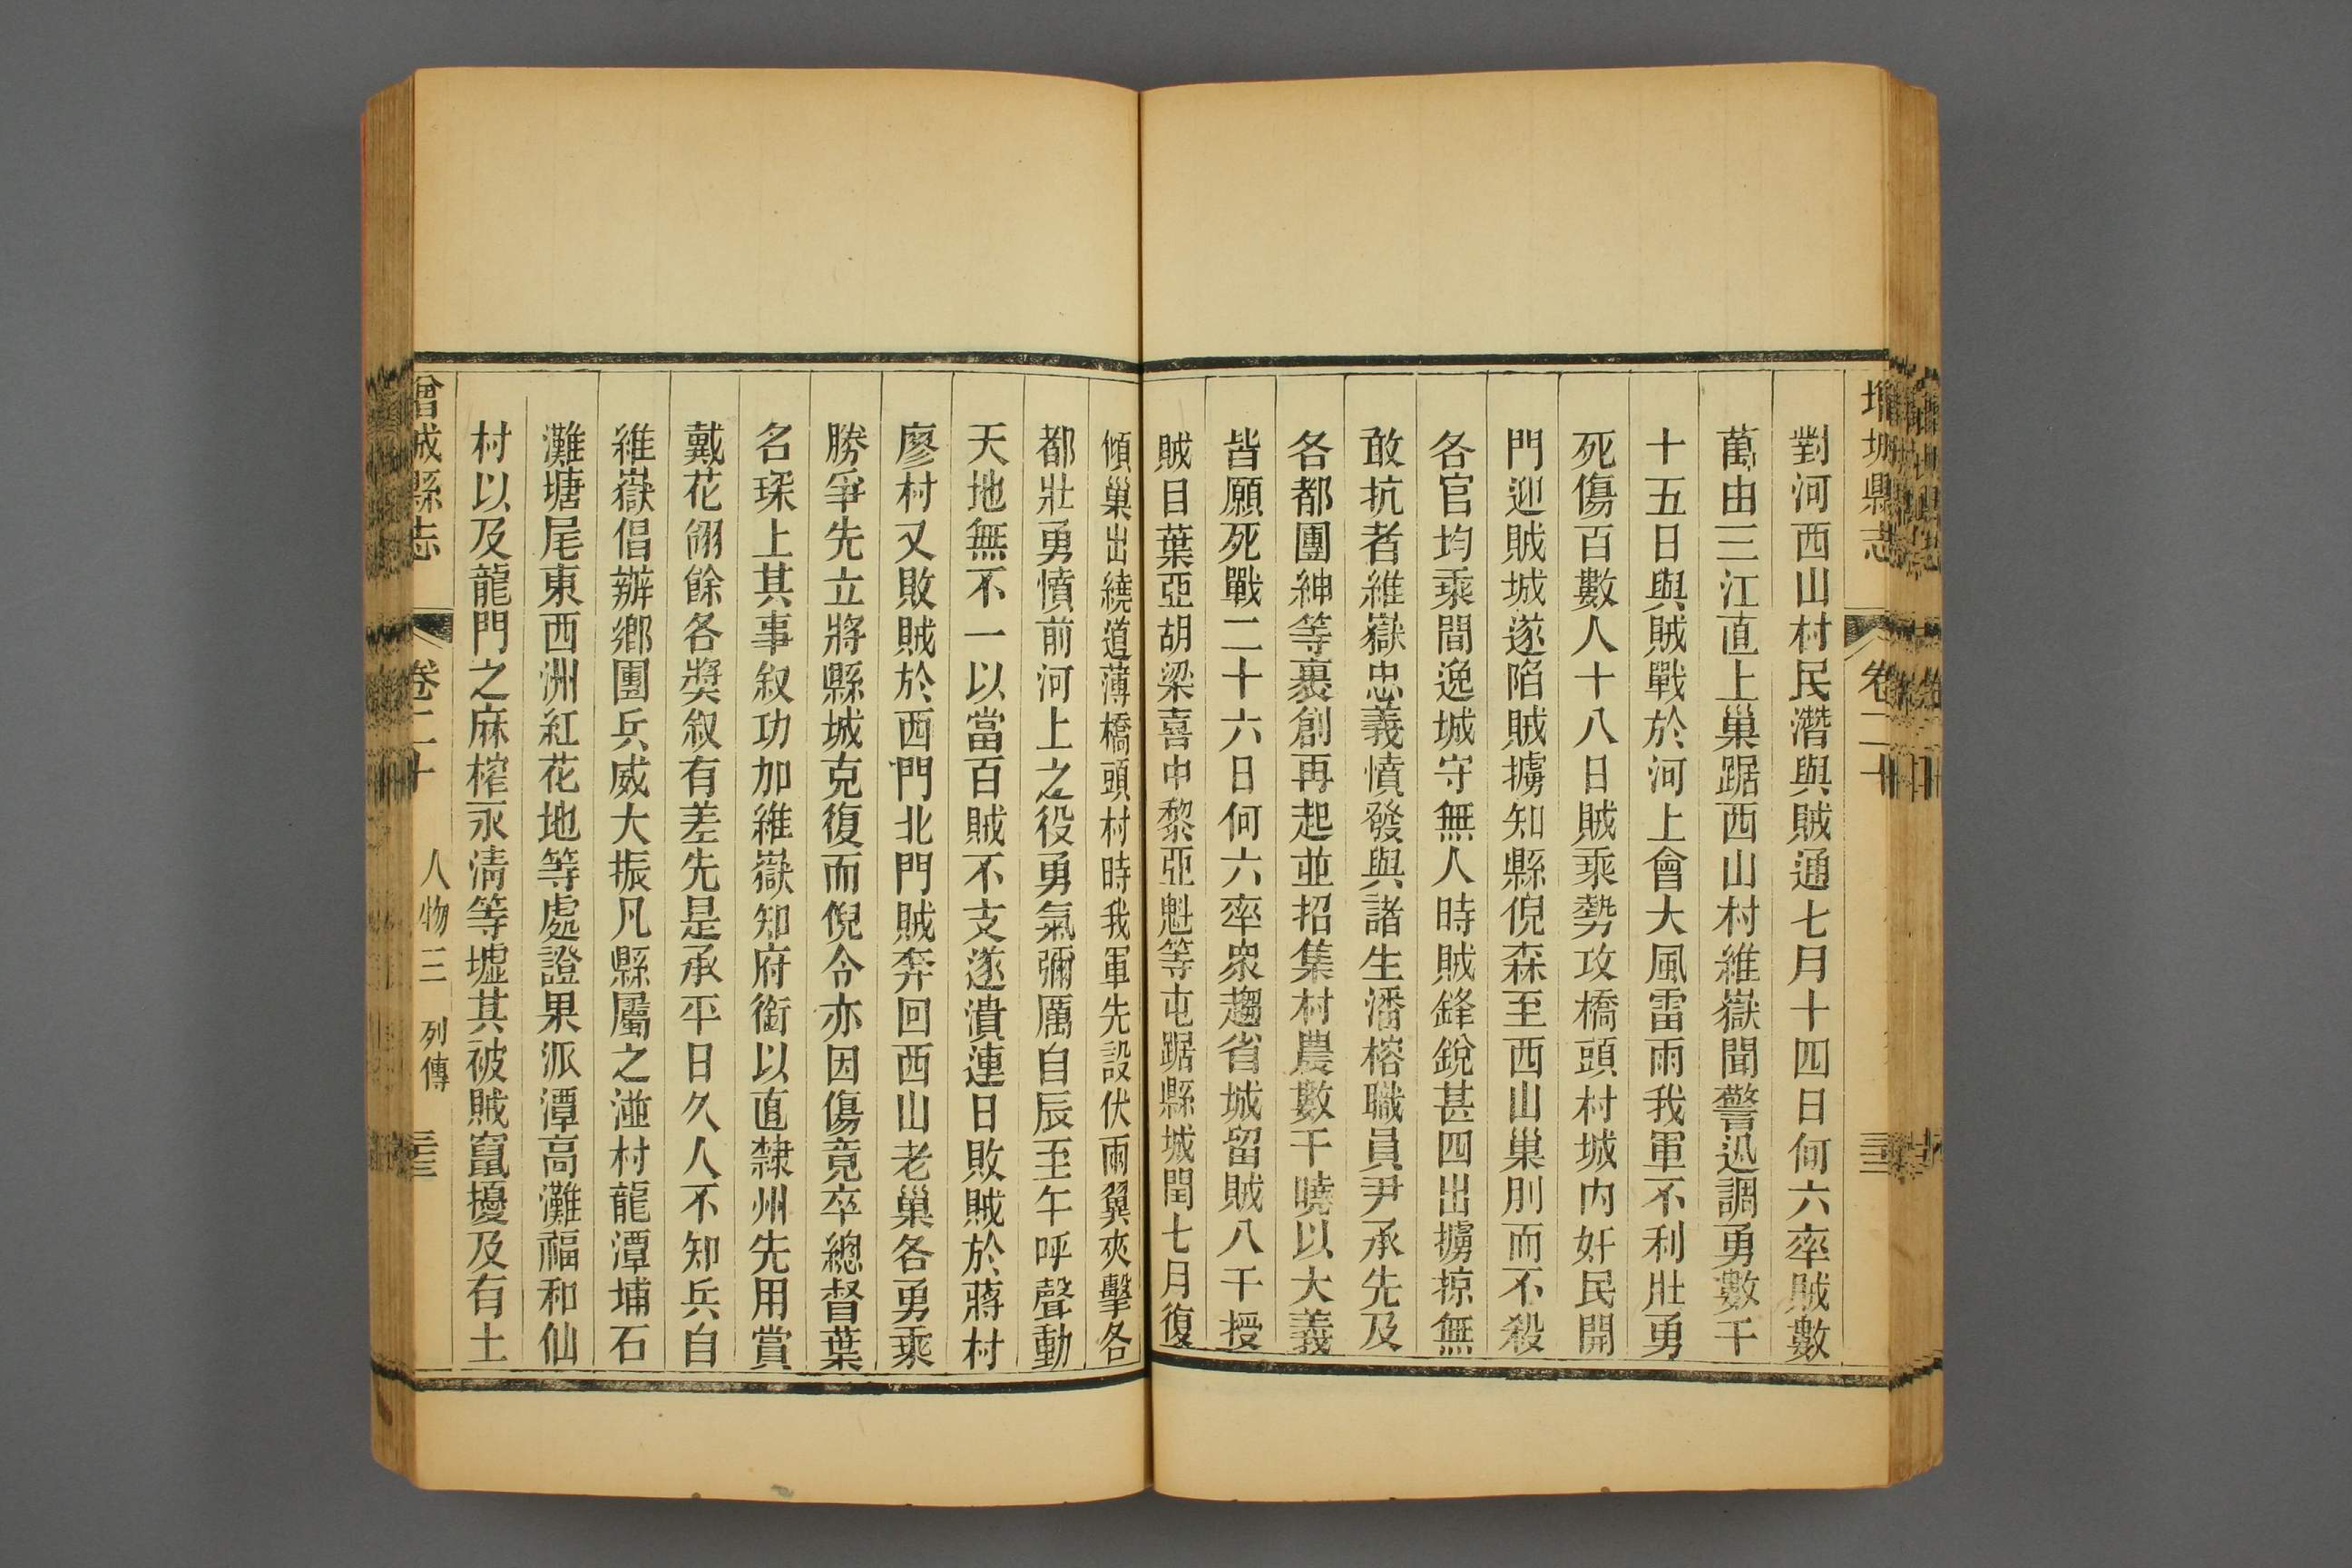 增城縣志 卷二十
對河西山村民潛與賊通七月十四日何六率賊數
萬由三江直上巢踞西山村維嶽聞警迅調勇數千
十五日與賊戰於河上會大風雷雨我軍不利壯勇
死傷百數人十八日賊乘勢攻橋頭村城內奸民開
門迎賊城遂陷賊擄知縣倪森至西山巢刖而不殺
各官均乘間逸城守無人時賊鋒銳甚四出擄掠無
敢抗者維嶽忠義憤發與諸生潘榕職員尹承先及
各都團紳等裹創再起並招集村農數千曉以大義
皆願死戰二十六日何六率衆趨省城留賊八千授
賊目葉亞胡梁喜中黎亞魁等屯踞縣城閏七月復
傾巢出繞道薄橋頭村時我軍先設伏兩翼夾擊各
都壯勇憤前河上之役勇氣彌厲自辰至午呼聲動
天地無不一以當百賊不支遂潰連日敗賊於蔣村
廖村又敗賊於西門北門賊奔回西山老巢各勇乘
勝爭先立將縣城克復而倪令亦因傷竟卒總督葉
名琛上其事叙功加維嶽知府銜以直隸州先用賞
戴花翎餘各獎叙有差先是承平日久人不知兵自
維嶽倡辦鄉團兵威大振凡縣屬之湴村龍潭埔石
灘塘尾東西洲紅花地等處證果派潭高灘福和仙
村以及龍門之麻榨永清等墟其被賊竄擾及有土
曾城縣志 卷二十 人物三 列傳